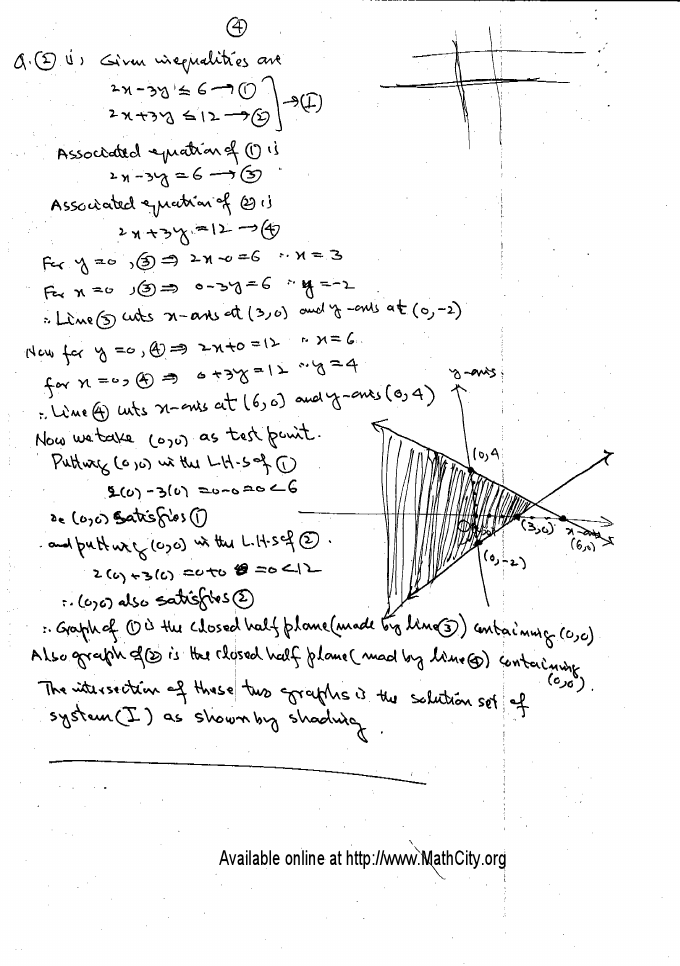 ④
Q.② i, Given inequalities are
2x-3y ≤ 6 → ①
2x+3y ≤ 12 → ②
→ (I)
Associated equation of ① is
2x-3y = 6 → ③
Associated equation of ② is
2x+3y = 12 → ④
For y=0, ③ ⇒ 2x-0=6 ∴ x=3
For x=0, ③ ⇒ 0-3y=6 ∴ y=-2
∴ Line ③ cuts x-axis at (3,0) and y-axis at (0,-2)
Now for y=0, ④ ⇒ 2x+0=12 ∴ x=6
for x=0, ④ ⇒ 0+3y=12 ∴ y=4
∴ Line ④ cuts x-axis at (6,0) and y-axis (0,4)
Now we take (0,0) as test point.
Putting (0,0) in the L.H.S of ①
2(0)-3(0) =0-0=0<6
so (0,0) satisfies ①
and putting (0,0) in the L.H.S of ②.
2(0)+3(0) =0+0 =0<12
∴ (0,0) also satisfies ②
∴ Graph of ① is the closed half plane (made by line ③) containing (0,0)
Also graph of ② is the closed half plane (mad by line ④) containing (0,0).
The intersection of these two graphs is the solution set of
system (I) as shown by shading.
y-axis
(0,4
(3,0)
x-axis
(6,0)
(0,-2)
Available online at http://www.MathCity.org